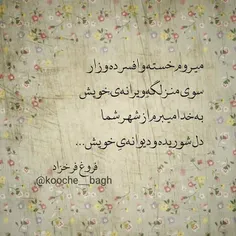 میروم خسته و افسرده و زار
سوی منزلگه ویرانه‌ی خویش
به خدا میبرم از شهر شما
دل شوریده و دیوانه‌ی خویش...
فروغ فرخزاد
@kooche__bagh